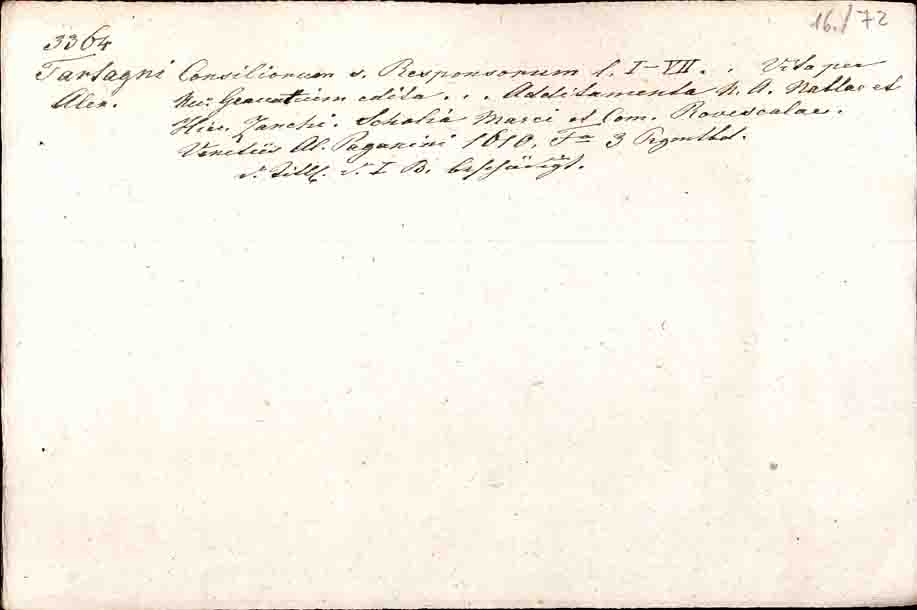 16./72
3364
Tartagni Consiliorum s. Responsorum l. I-VII. . Vita per
Alex. Nic. Gravatium edita . . . Additamenta M. A. Nattae et
Hier. Zanchi. Scholia Marci et Com. Roviscalae.
Venetiis Al. Paganini 1610. Fo 3 Pgmtbd.
d. Titlf. d. I B. beschädigt.